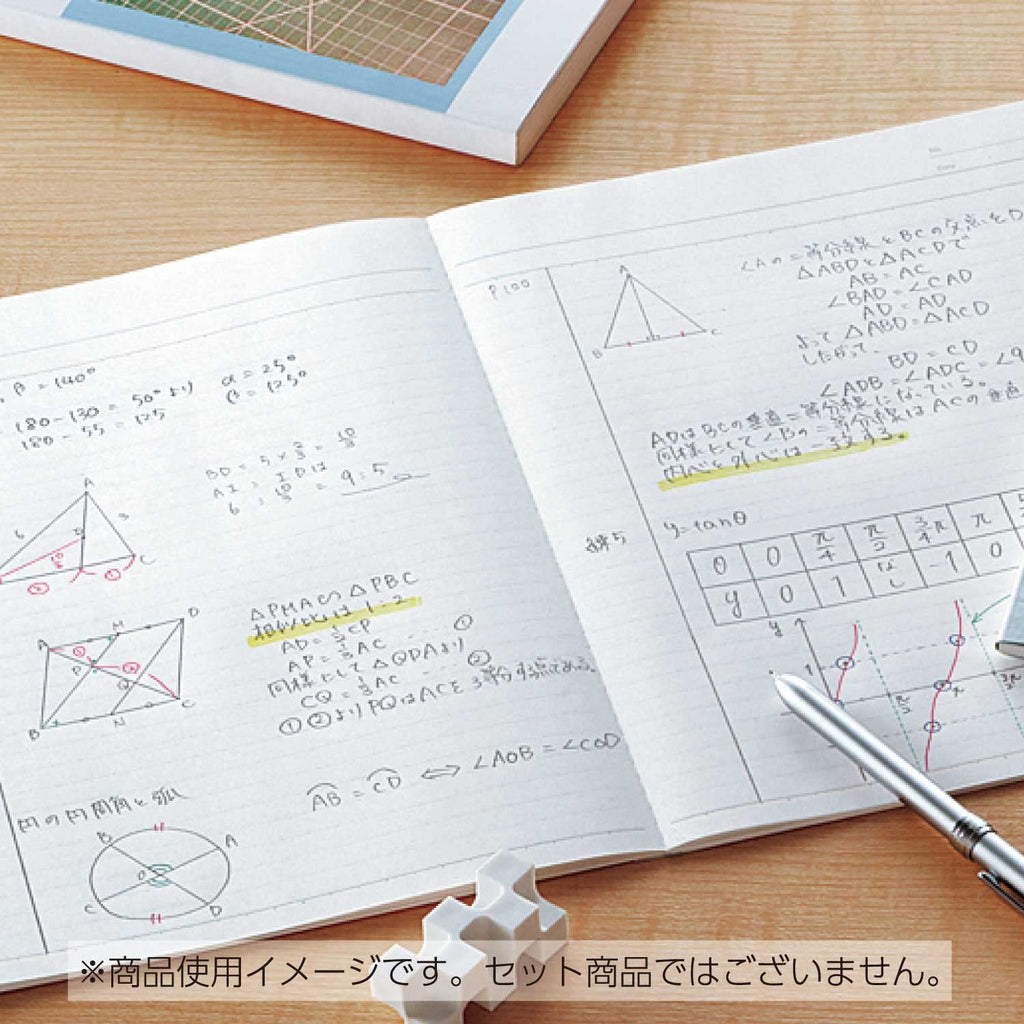 β = 140°
180 - 130 = 50° より
180 - 55 = 125
α = 25°
β = 125°
BD = 5 × 2/3 = 10/3
AI : ID は
6 : 10/3 = 9 : 5
A
6
3
C
A
M
D
P
Q
B
N
C
△PMA∽△PBC
相似比は 1:2
AD = 1/3 CP
AP = 1/3 AC … ①
同様にして △QDAより
CQ = 1/3 AC … ②
①②より PQはACを3等分する点である
円の円周角と弧
AB = CD ⟺ ∠AOB = ∠COD
B
A
O
C
D
No.
Date
P100
A
B
D
C
∠Aの二等分線とBCの交点をD
△ABDと△ACDで
AB = AC
∠BAD = ∠CAD
AD = AD
よって △ABD = △ACD
したがって、
BD = CD
∠ADB = ∠ADC = ∠9
ADはBCの垂直二等分線になっている。
同様にして∠Bの二等分線はACの垂直
内心と外心は一致する。
y = tanθ
θ 0 π/4 π/2 3/4π π
y 0 1 なし -1 0
y
1
π/2
π
3π/2
※商品使用イメージです。セット商品ではございません。